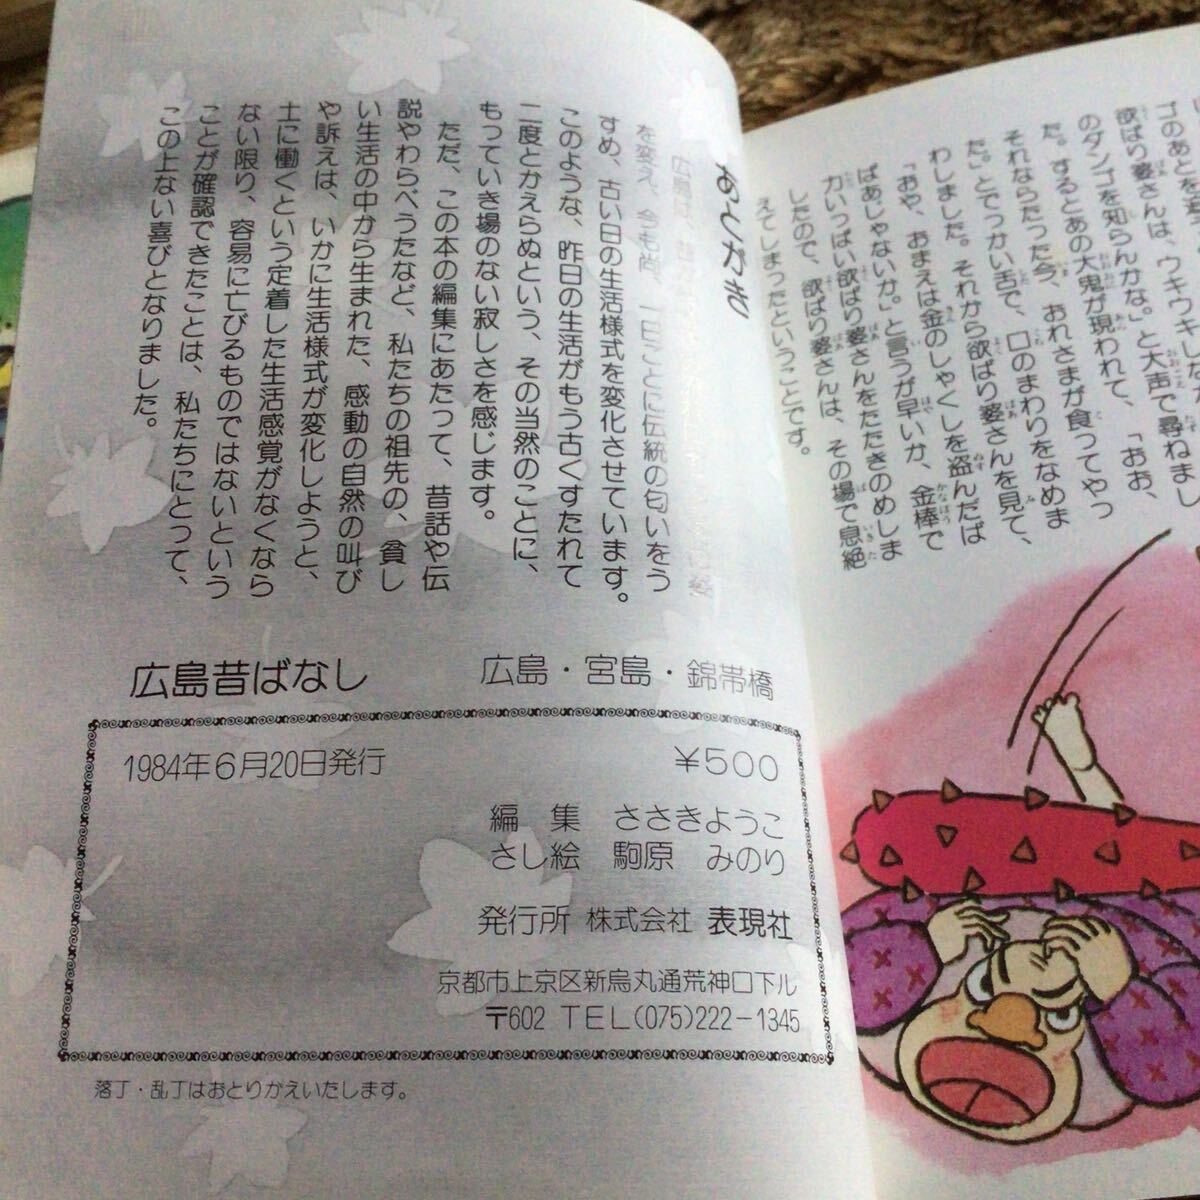 ゴのあとを
欲ばり婆さんは、ウキウキし
のダンゴを知らんかな。」と大声で尋ねまし
た。するとあの大鬼が現われて、「おお、
それならたった今、おれさまが食ってやっ
た。」とでっかい舌で、口のまわりをなめま
わしました。それから欲ばり婆さんを見て、
「おや、おまえは金のしゃくしを盗んだば
ばあじゃないか。」と言うが早いか、金棒で
力いっぱい欲ばり婆さんをたたきのめしま
したので、欲ばり婆さんは、その場で息絶
えてしまったということです。
あとがき
広島は、
を変え、今も尚、一日ごとに伝統の匂いをう
すめ、古い日の生活様式を変化させています。
このような、昨日の生活がもう古くすたれて
二度とかえらぬという、その当然のことに、
もっていき場のない寂しさを感じます。
ただ、この本の編集にあたって、昔話や伝
説やわらべうたなど、私たちの祖先の、貧し
い生活の中から生まれた、感動の自然の叫び
や訴えは、いかに生活様式が変化しようと、
土に働くという定着した生活感覚がなくなら
ない限り、容易に亡びるものではないという
ことが確認できたことは、私たちにとって、
この上ない喜びとなりました。
広島昔ばなし　広島・宮島・錦帯橋
1984年6月20日発行　¥500
編　集　ささきようこ
さし絵　駒原　みのり
発行所　株式会社　表現社
京都市上京区新烏丸通荒神口下ル
〒602　TEL(075)222-1345
落丁・乱丁はおとりかえいたします。